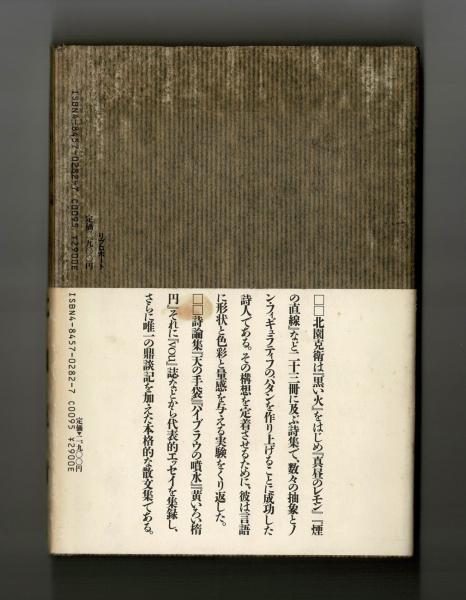 □□北園克衛は『黒い火』をはじめ『真昼のレモン』『煙
の直線』など二十三冊に及ぶ詩集で、数々の抽象とノ
ン・フィギュラティフのパタンを作り上げることに成功した
詩人である。その構想を定着させるために、彼は言語
に形状と色彩と量感を与える実験をくり返した。
□□詩論集『天の手袋』『ハイブラウの噴水』『黄いろい楕
円』それに『VOU』誌などから代表的エッセイを集録し、
さらに唯一の鼎談記を加えた本格的な散文集である。
リブロポート
定価二九〇〇円
ISBN4-8457-0282-7 C0095 ¥2900E
定価二九〇〇円
ISBN4-8457-0282-7 C0095 ¥2900E